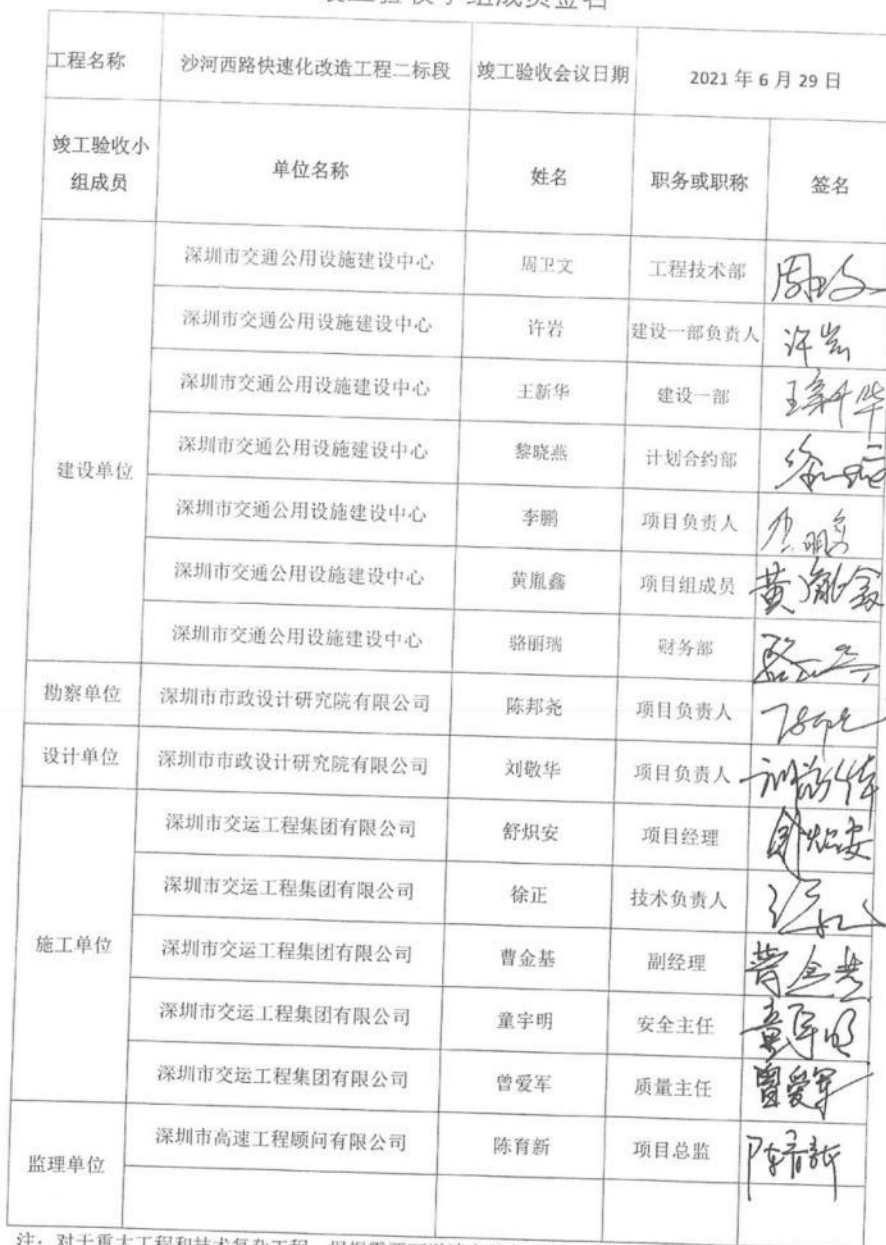 竣工验收小组成员签名
工程名称 沙河西路快速化改造工程二标段 竣工验收会议日期 2021 年 6 月 29 日
竣工验收小组成员 单位名称 姓名 职务或职称 签名
建设单位
深圳市交通公用设施建设中心 周卫文 工程技术部
深圳市交通公用设施建设中心 许岩 建设一部负责人 许岩
深圳市交通公用设施建设中心 王新华 建设一部 王新华
深圳市交通公用设施建设中心 黎晓燕 计划合约部
深圳市交通公用设施建设中心 李鹏 项目负责人 李鹏
深圳市交通公用设施建设中心 黄胤鑫 项目组成员 黄胤鑫
深圳市交通公用设施建设中心 骆丽瑞 财务部
勘察单位 深圳市市政设计研究院有限公司 陈邦尧 项目负责人
设计单位 深圳市市政设计研究院有限公司 刘敬华 项目负责人
施工单位
深圳市交运工程集团有限公司 舒炽安 项目经理
深圳市交运工程集团有限公司 徐正 技术负责人
深圳市交运工程集团有限公司 曹金基 副经理 曹金基
深圳市交运工程集团有限公司 童宇明 安全主任 童宇明
深圳市交运工程集团有限公司 曾爱军 质量主任 曾爱军
监理单位 深圳市高速工程顾问有限公司 陈育新 项目总监 陈育新
注：对于重大工程和技术复杂工程，根据需要可邀请